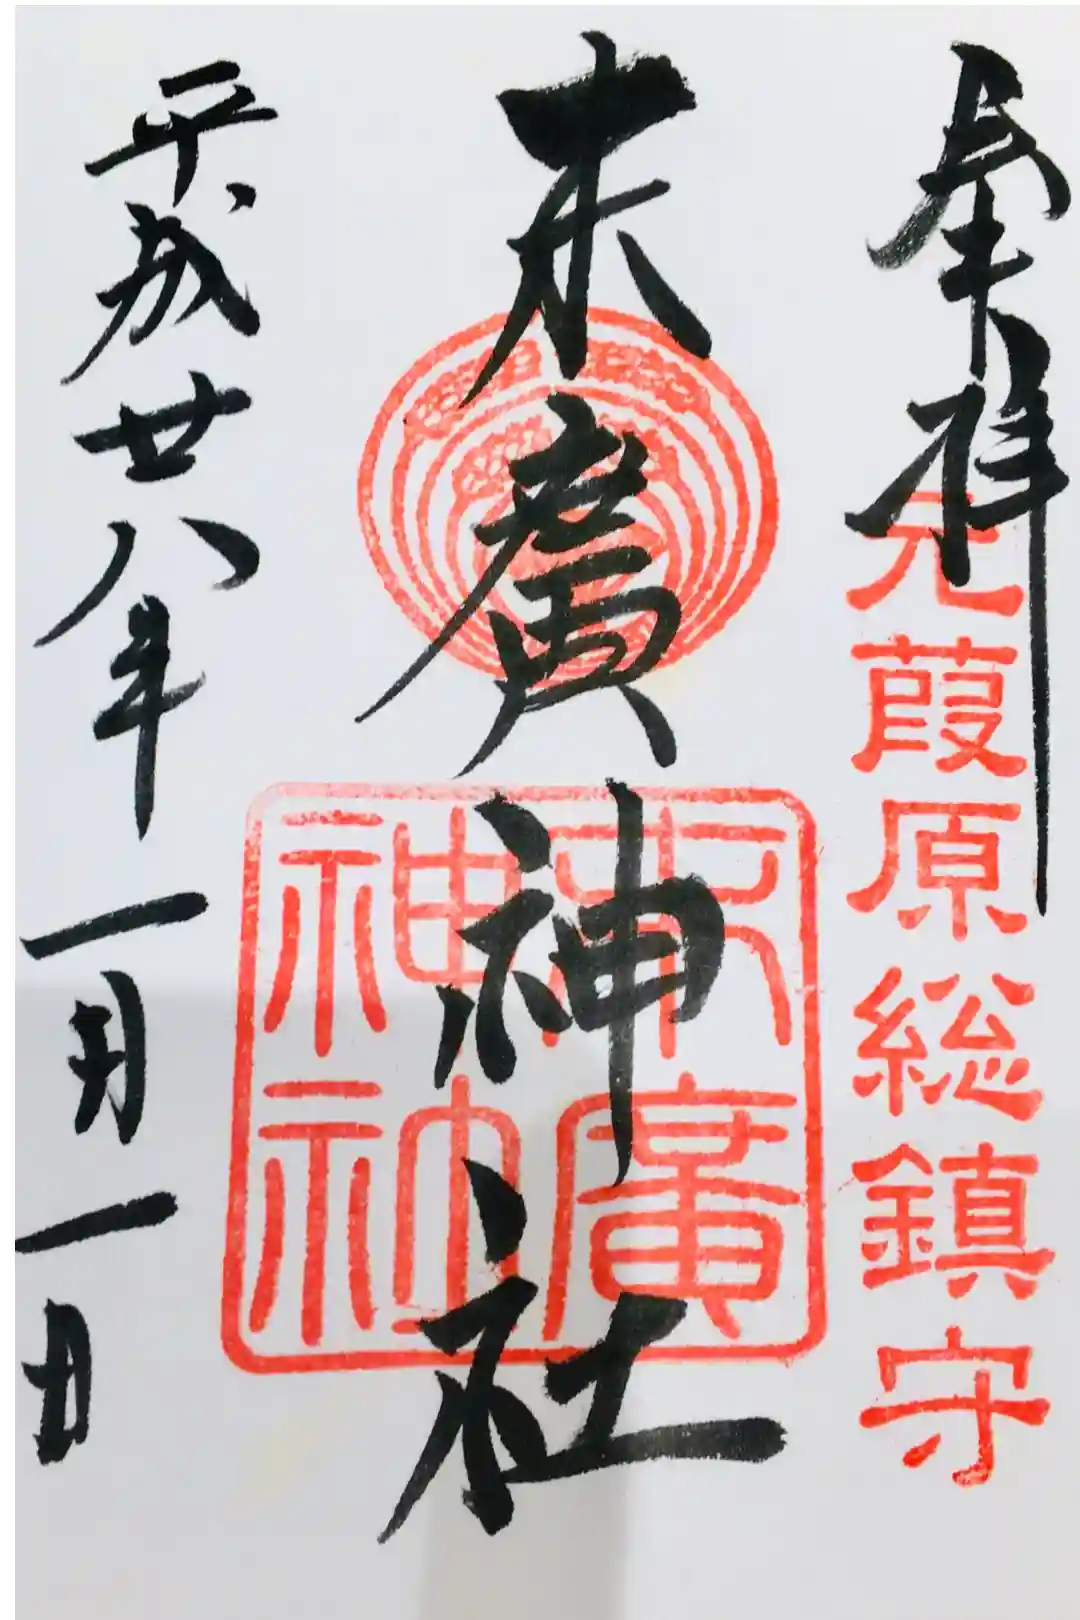 奉拝
元葭原総鎮守
末廣神社
末廣
神社
平成廿八年一月一日